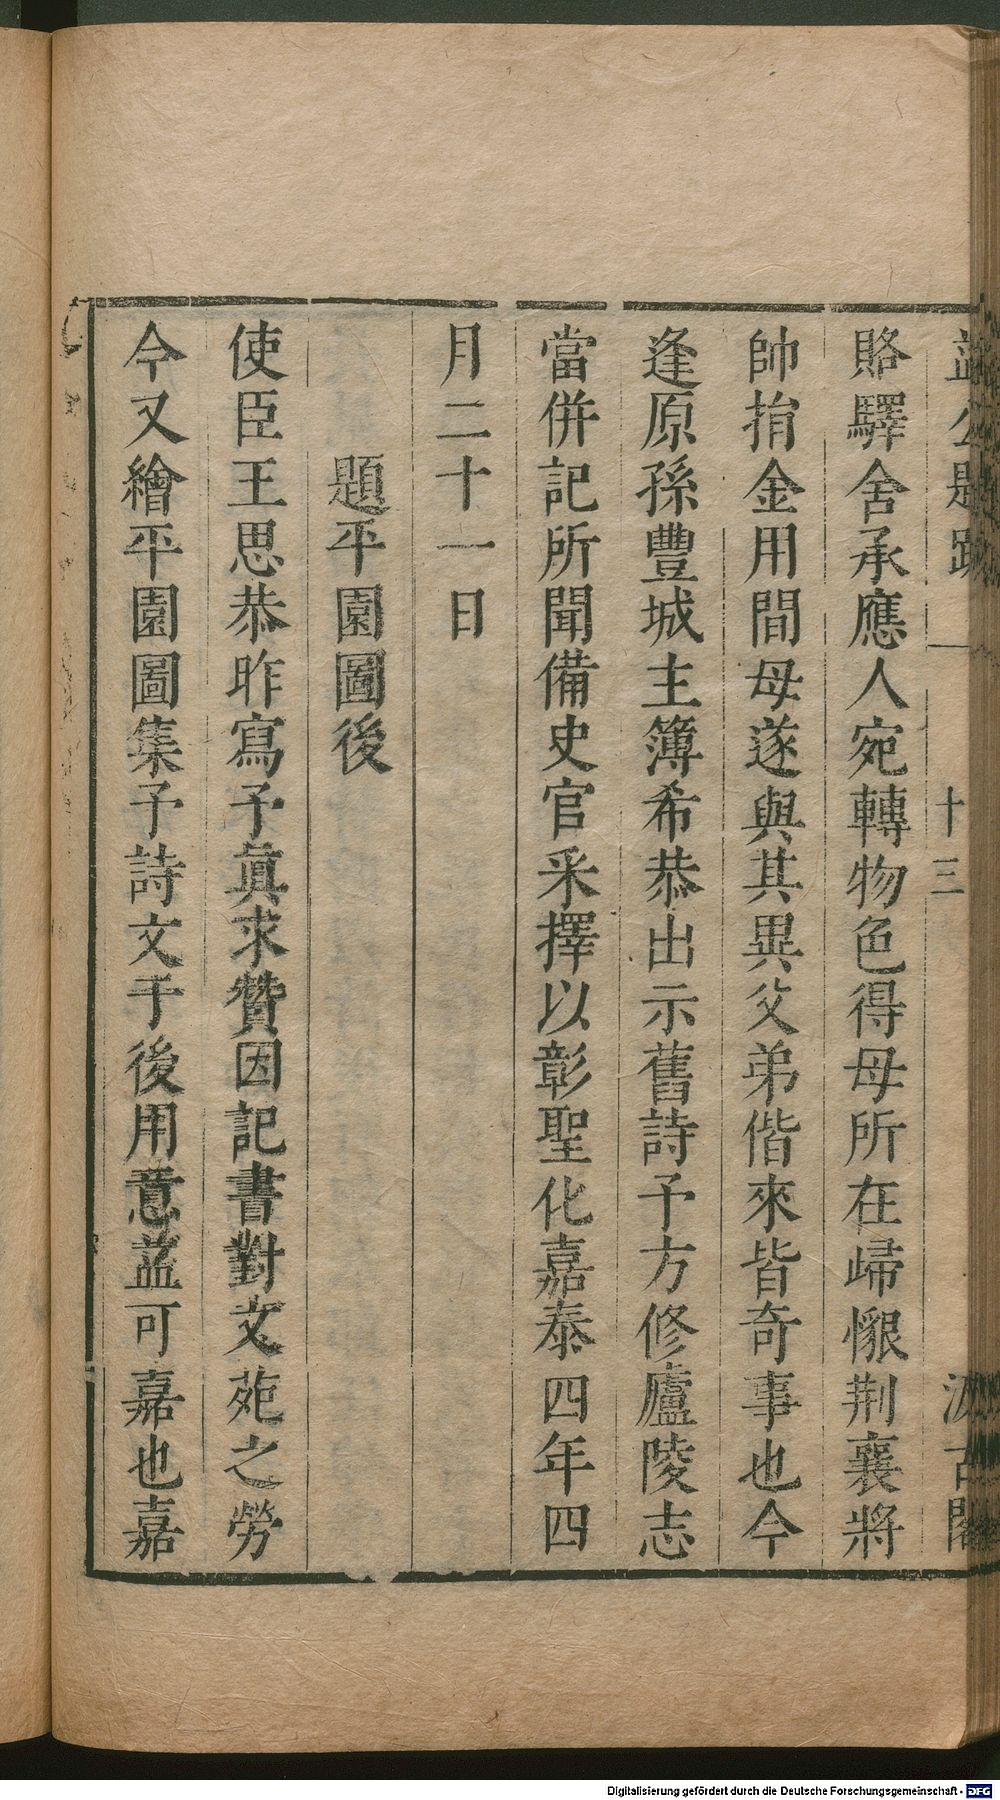 益公題跋 一 十三 汲古閣
賂驛舍承應人宛轉物色得母所在歸懇荆襄將
帥捐金用間母遂與其異父弟偕來皆奇事也今
逢原孫豐城主簿希恭出示舊詩予方修廬陵志
當併記所聞備史官采擇以彰聖化嘉泰四年四
月二十一日
題平園圖後
使臣王思恭昨寫予眞求贊因記書對文苑之勞
今又繪平園圖集予詩文于後用意葢可嘉也嘉
Digitalisierung gefördert durch die Deutsche Forschungsgemeinschaft - DFG